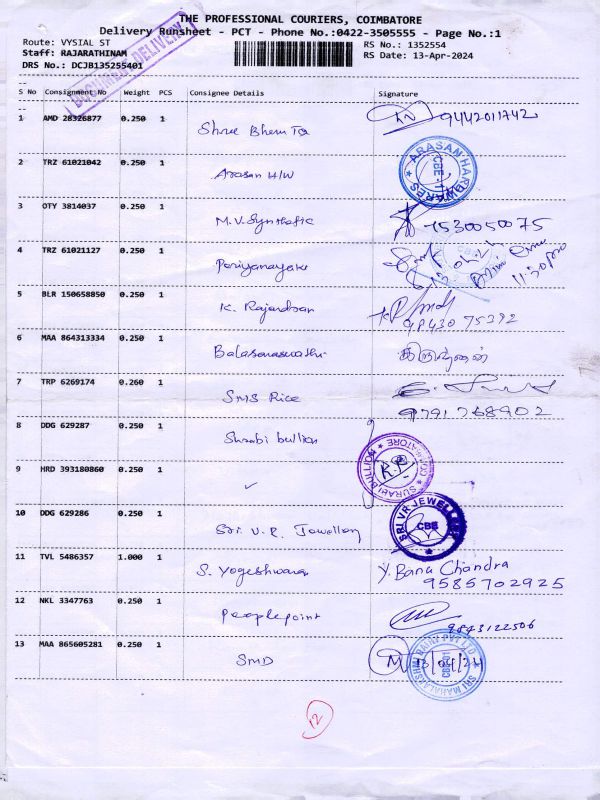 THE PROFESSIONAL COURIERS, COIMBATORE
Delivery Runsheet - PCT - Phone No.:0422-3505555 - Page No.:1
Route: VYSIAL ST
RS No.: 1352554
Staff: RAJARATHINAM
RS Date: 13-Apr-2024
DRS No.: DCJB135255401
DELIVERY
S No Consignment No Weight PCS Consignee Details Signature
1 AMD 28326877 0.250 1 Shree Bhem Ta 9442011742
2 TRZ 61021042 0.250 1 Arasan H/W ARASAN HARDWARES CBE-1
3 OTY 3814037 0.250 1 M.V. Synthatic 7530050075
4 TRZ 61021127 0.250 1 Periyanayaki
5 BLR 150658850 0.250 1 K. Rajendran 98430 75392
6 MAA 864313334 0.250 1 Balasaraswathi
7 TRP 6269174 0.260 1 SMS Rice 9791768902
8 DDG 629287 0.250 1 Surabi bullion
SURABI BULLION COIMBATORE R.P
9 HRD 393180860 0.250 1 ✓
10 DDG 629286 0.250 1 Sri. V. R. Jewellery SRI VR JEWELLERY CBE
11 TVL 5486357 1.000 1 S. Yogeshwara Y. Banu Chandra
9585702925
12 NKL 3347763 0.250 1 Peoplepoint 9843122506
13 MAA 865605281 0.250 1 SMD 13/04/24
SRI MAHALAKSHMI DAIRY PVT LTD
12